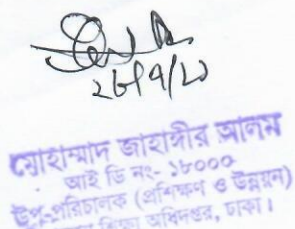 ২৮/৭/২১
মোহাম্মাদ জাহাঙ্গীর আলম
আই ডি নং- ১৮০০০
উপ-পরিচালক (প্রশিক্ষণ ও উন্নয়ন)
শিক্ষা অধিদপ্তর, ঢাকা।